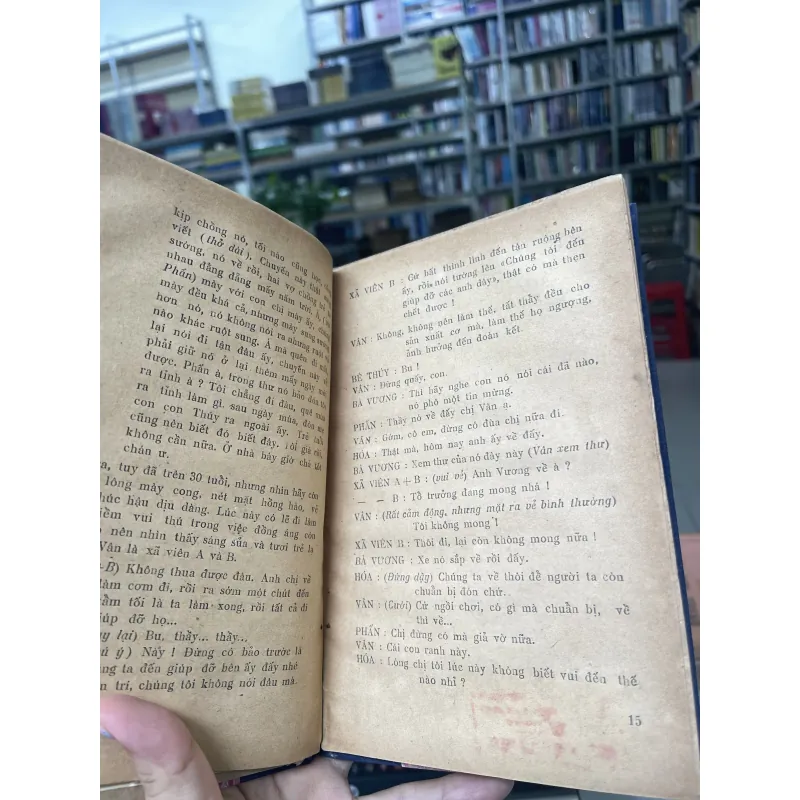 kịp chồng nó, tối nào cũng
viết (thở dài). Chuyến này
sướng, nó về rồi, hai vợ chồng
nhau đằng đẵng mấy năm trời.
Phấn) mày với con chị mày ấy,
mày đều khá cả, nhưng mày sung sướng
hơn nó, nó không nói ra nhưng ruột
nào khác ruột sung. À mà quên đi
lại nói đi tận đâu ấy, chuyến này về
phải giữ nó ở lại thêm mấy ngày
được. Phấn à, trong thư nó bảo đón
ra tỉnh à ? Tôi chẳng đi đâu, quê
ra tỉnh làm gì. sau ngày mùa,
con con Thúy ra ngoài ấy. Trẻ
cũng nên biết đó biết đây. Tôi già rồi,
không cần nữa. Ở nhà bây giờ chả
chán ư.
a, tuy đã trên 30 tuổi, nhưng nhìn hãy còn
lông mày cong, nét mặt hồng hào, vẻ
húc hậu dịu dàng. Lúc này có lẽ đi làm
iềm vui thú trong việc đồng áng còn
ẻ nên nhìn thấy sáng sủa và tươi trẻ lạ
Vân là xã viên A và B.
+B) Không thua được đàn. Anh chị về
làm cơm đi, rồi ra sớm một chút đến
ầm tối là ta làm xong, rồi tất cả đi
giúp đỡ họ...
ay lại) Bu, thầy... thầy...
ú ý) Này ! Đừng có bảo trước là
ng ta đến giúp đỡ bên ấy đấy nhé
n trí, chúng tôi không nói đâu mà.
XÃ VIÊN B : Cứ bất thình lình đến tận ruộng bên
ấy, rồi nói tướng lên «Chúng tôi đến
giúp đỡ các anh đây», thật có mà thẹn
chết được !
VÂN : Không, không nên làm thế, tất thảy đều cho
sản xuất cơ mà, làm thế họ ngượng,
ảnh hưởng đến đoàn kết.
BÉ THÚY : Bu !
VÂN : Đừng quấy, con.
BÀ VƯƠNG : Thì hãy nghe con nó nói cái đã nào,
nó phô một tin mừng.
PHẤN : Thầy nó về đấy chị Vân ạ.
VÂN : Gớm, cô em, đừng có đùa chị nữa đi.
HÓA : Thật mà, hôm nay anh ấy về đấy.
BÀ VƯƠNG : Xem thư của nó đây này (Vân xem thư)
XÃ VIÊN A + B : (vui vẻ) Anh Vương về à ?
— — B : Tổ trưởng đang mong nhá !
VÂN : (Rất cảm động, nhưng mặt ra vẻ bình thường)
Tôi không mong !
XÃ VIÊN B : Thôi đi, lại còn không mong nữa !
BÀ VƯƠNG : Xe nó sắp về rồi đấy.
HÓA : (Đứng dậy) Chúng ta về thôi để người ta còn
chuẩn bị đón chứ.
VÂN : (Cười) Cứ ngồi chơi, có gì mà chuẩn bị, về
thì về...
PHẤN : Chị đừng có mà giả vờ nữa.
VÂN : Cái con ranh này.
HÓA : Lòng chị tôi lúc này không biết vui đến thế
nào nhỉ ?
15